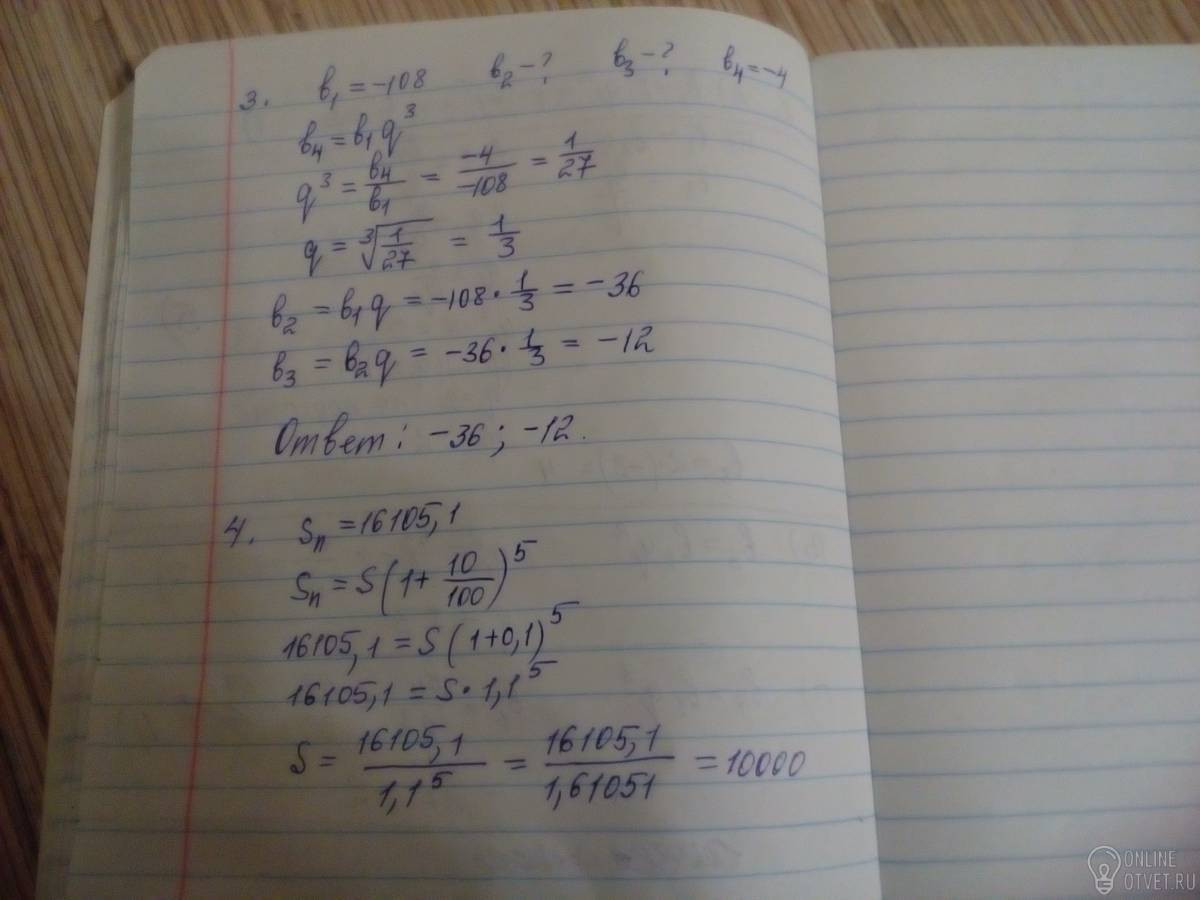 3. b₁ = -108 b₂ - ? b₃ - ? b₄ = -4
b₄ = b₁q³
q³ = b₄/b₁ = -4/-108 = 1/27
q = ∛(1/27) = 1/3
b₂ = b₁q = -108 · 1/3 = -36
b₃ = b₂q = -36 · 1/3 = -12
Ответ: -36; -12.
4. Sₙ = 16105,1
Sₙ = S(1 + 10/100)⁵
16105,1 = S(1+0,1)⁵
16105,1 = S · 1,1⁵
S = 16105,1/1,1⁵ = 16105,1/1,61051 = 10000
ONLINE
OTVET.RU